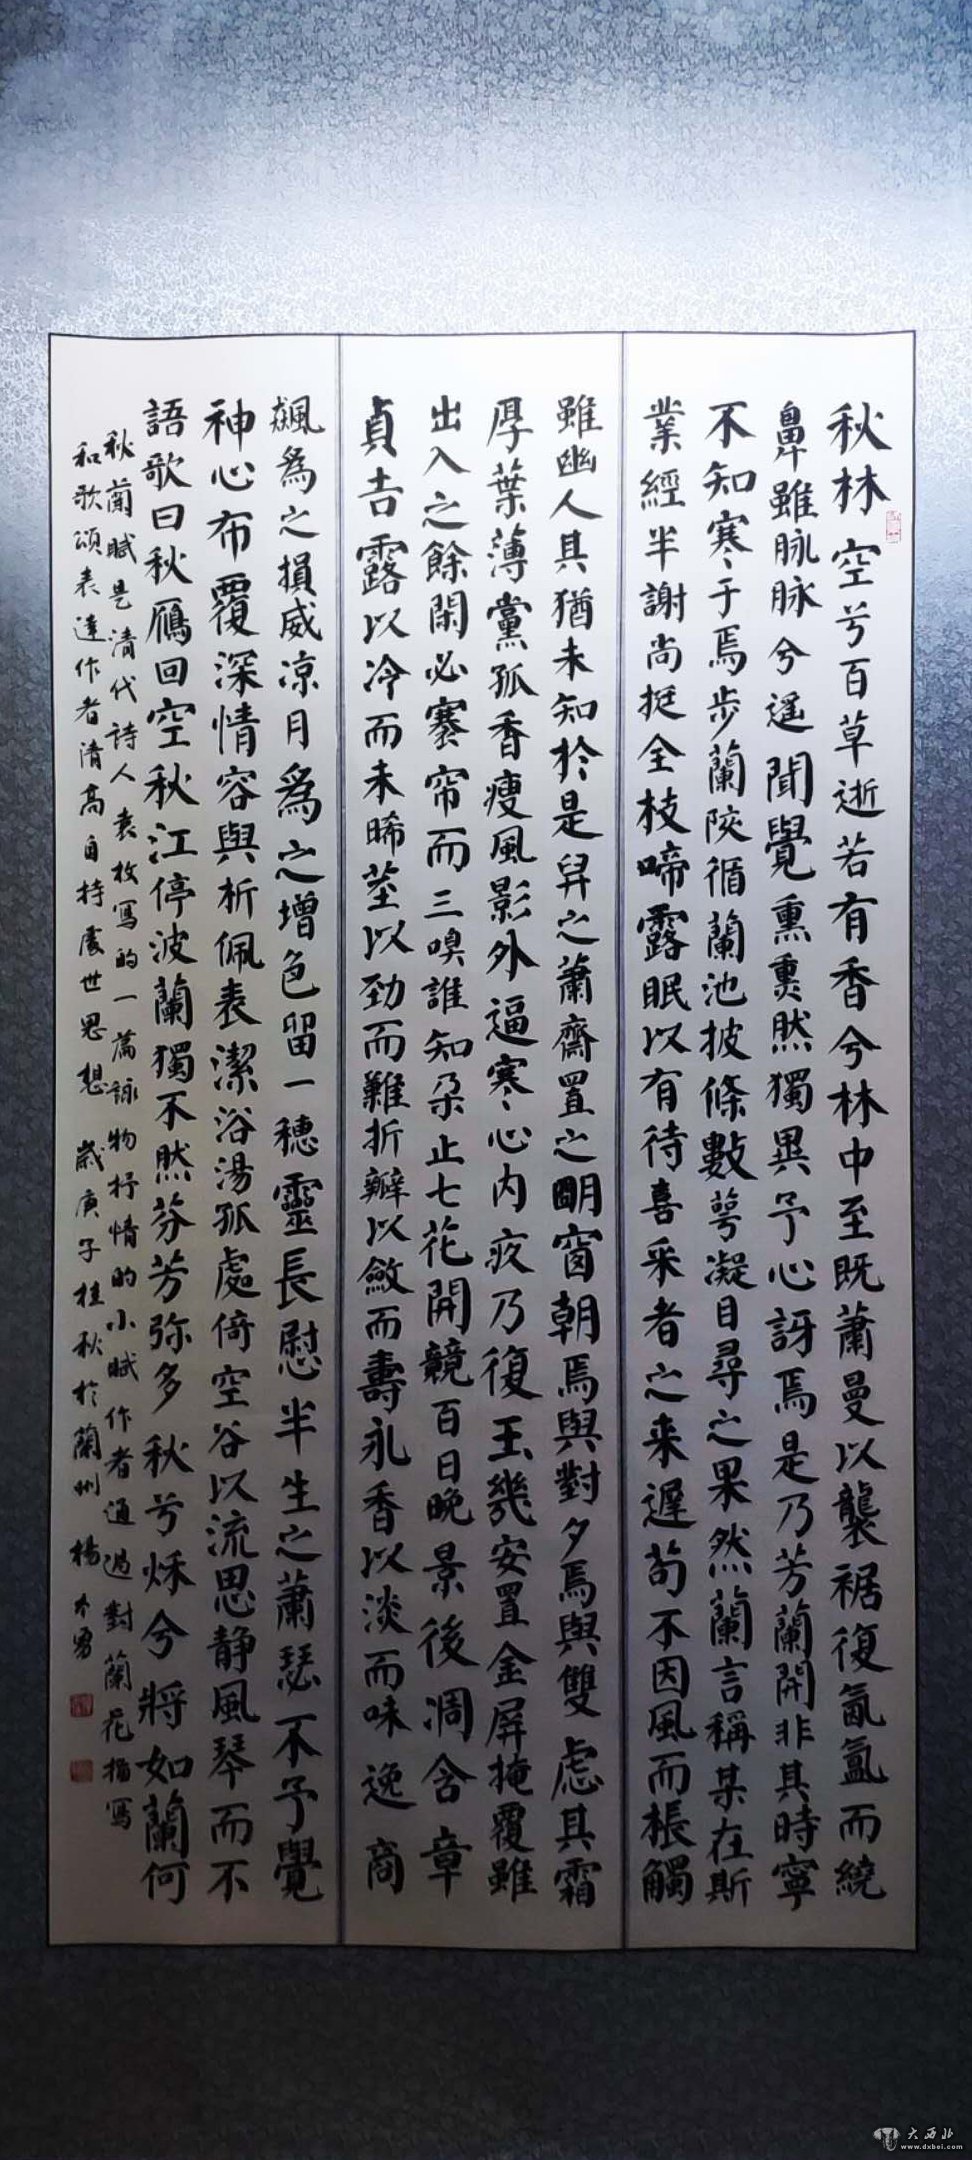 秋林空兮百草逝若有香兮林中至既蕭曼以襲裾復氤氳而繞
鼻雖脉脉兮遥聞覺熏熏然獨異予心訝焉是乃芳蘭開非其時寧
不知寒于焉步蘭陔循蘭池披條數萼凝目尋之果然蘭言稱某在斯
業經半謝尚挺全枝啼露眠以有待喜采者之来遲苟不因風而棖觸
雖幽人其猶未知於是舁之蕭齋置之明窗朝焉與對夕焉與雙慮其霜
厚葉薄黨孤香瘦風影外逼寒心内疚乃復玉幾安置金屏掩覆雖
出入之餘閑必褰帘而三嗅誰知朵止七花開競百日晚景後凋含章
貞吉露以冷而未晞莖以勁而難折瓣以斂而壽永香以淡而味逸商
飆爲之損威凉月爲之增色留一穗靈長慰半生之蕭瑟不予覺
神心布覆深情容與析佩表潔浴湯孤處倚空谷以流思静風琴而不
語歌曰秋雁回空秋江停波蘭獨不然芬芳弥多秋兮秋兮將如蘭何
秋蘭賦是清代詩人袁枚寫的一篇詠物抒情的小賦作者通過對蘭花描寫
和歌頌表達作者清高自持處世思想 歲庚子桂秋於蘭州 楊本勇
大西北
www.dxbei.com